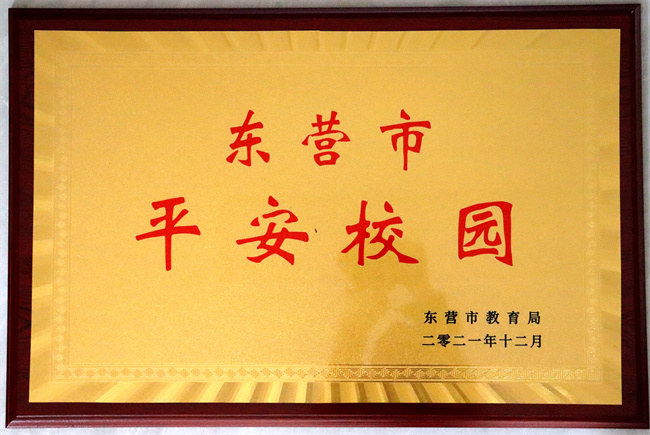 东营市
平安校园
东营市教育局
二零二一年十二月